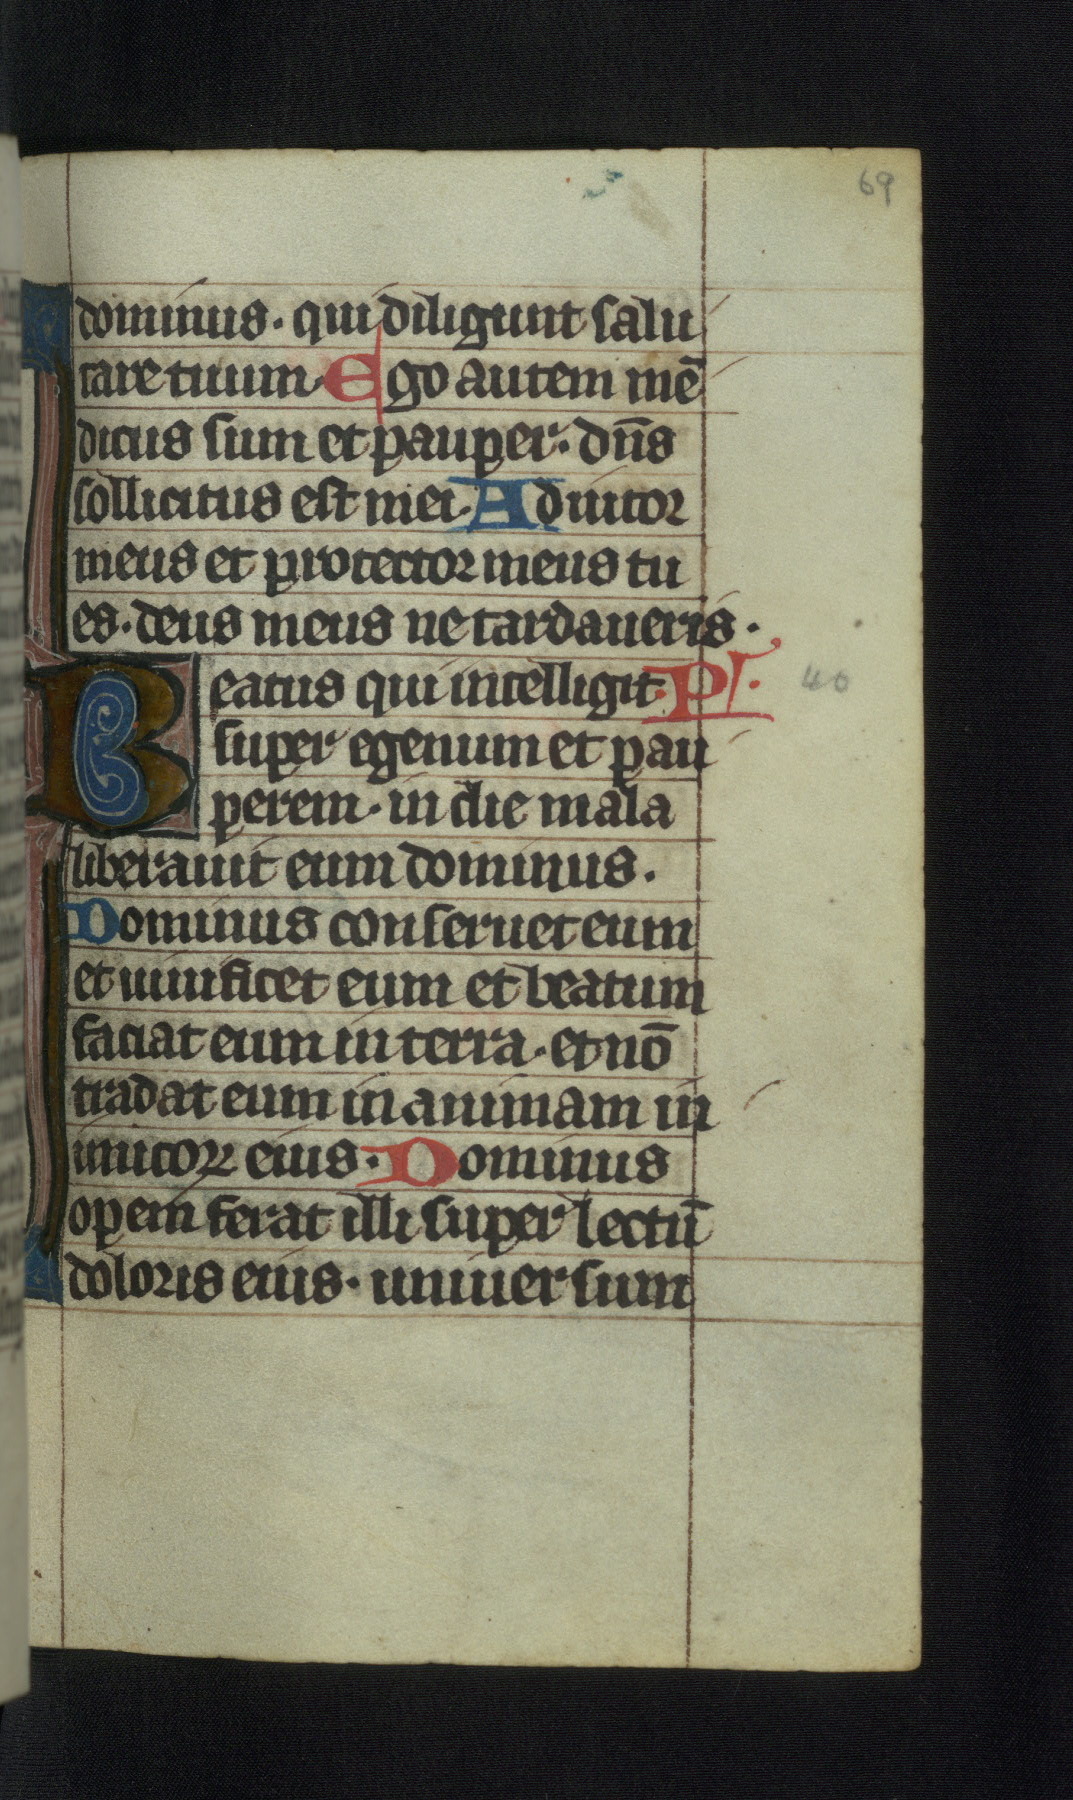 69
dominus. qui diligunt salu
tare tuum. Ego autem mē
dicus sum et pauper. dn̄s
sollicitus est mei. Adiutor
meus et protector meus tu
es. deus meus ne tardaueris.
Beatus qui intelligit. Ps. 40
super egenum et pau
perem. in die mala
liberauit eum dominus.
Dominus conseruet eum
et uiuificet eum et beatum
faciat eum in terra. et nō
tradat eum in animam in
imicoꝝ eius. Dominus
opem ferat illi super lectū
doloris eius. uniuersum